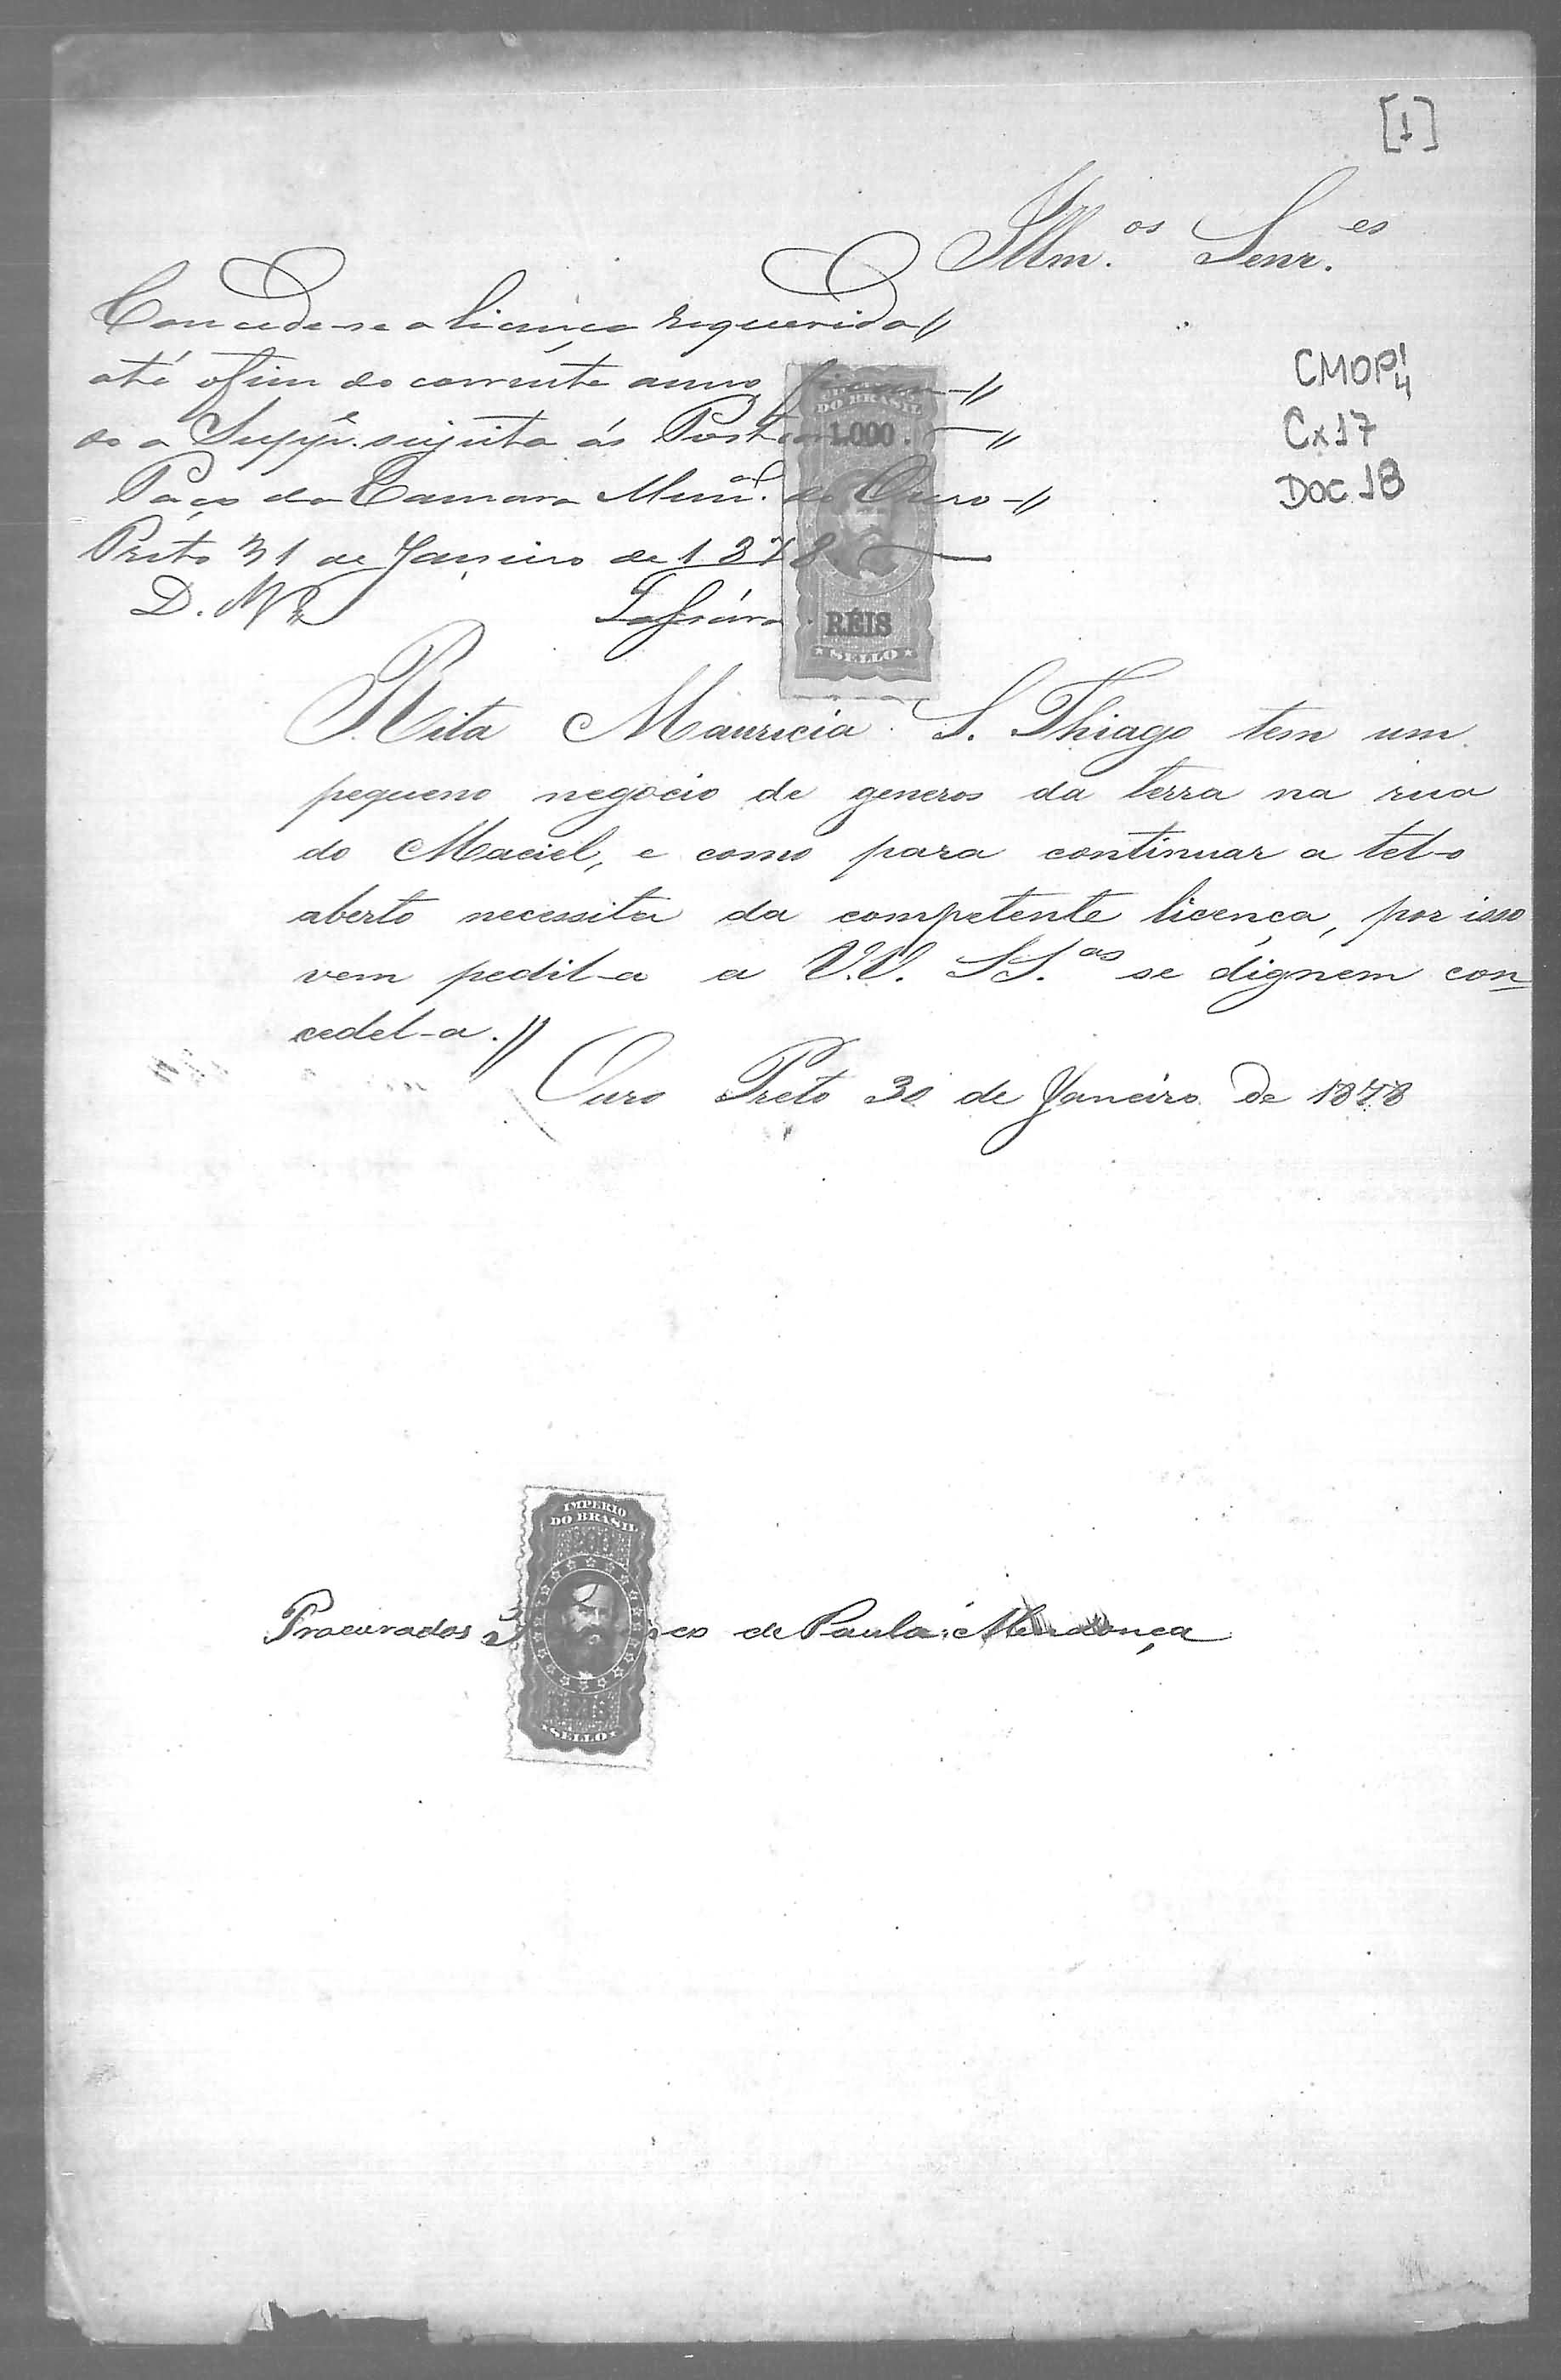 [1]
Illm.os Senr.es
Concede-se a licença requerida //
até o fim do corrente anno, fican- //
do a Supp.e sujeita ás Posturas. //
Paço da Camara Mun.al de Ouro- //
Preto 31 de Janeiro de 1878
D. M
CMOP¹4
Cx17
DOC.18
DO BRASIL
1.000
RÉIS
SELLO
Rita Mauricia S. Thiago tem um
pequeno negocio de generos da terra na rua
do Maciel, e como para continuar a tel-o
aberto necessita da competente licença, por isso
vem pedil-a a V.V. SS.as se dignem con=
cedel-a.//
Ouro Preto 30 de Janeiro de 1878
IMPERIO
DO BRASIL
Procurador co de Paula Mendonça
SELLO